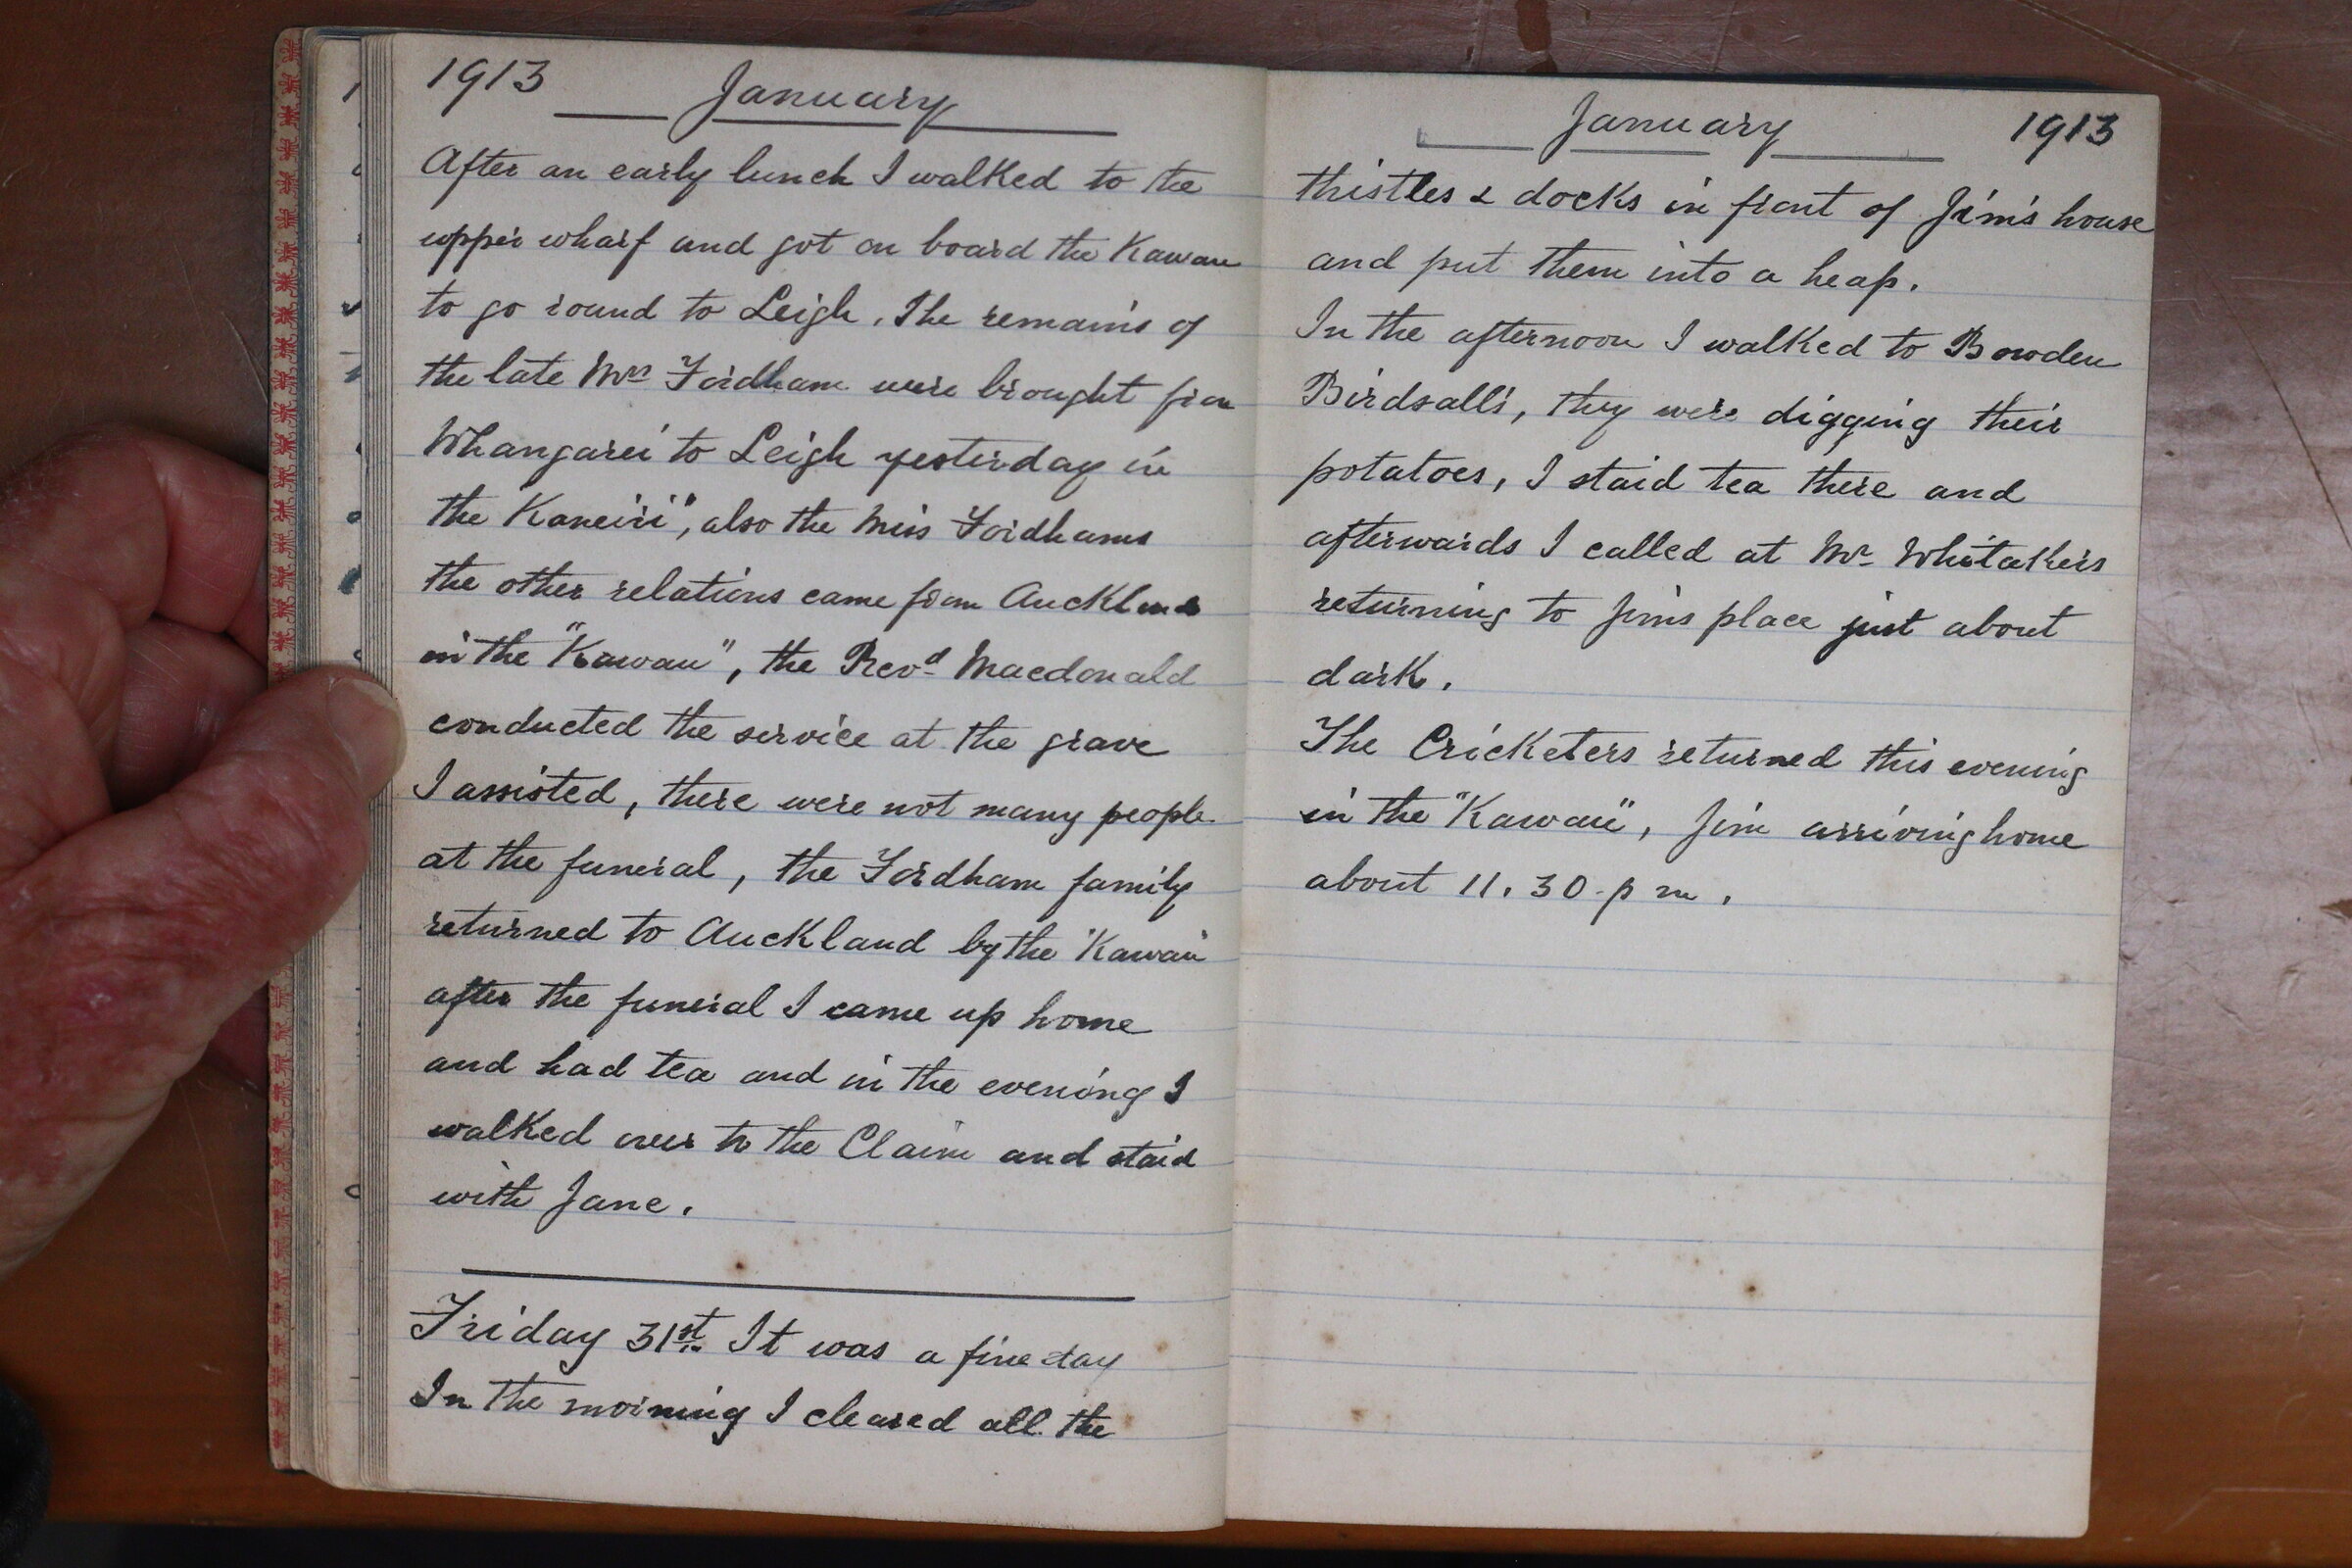 1913 January
After an early lunch I walked to the
upper wharf and got on board the Kawau
to go round to Leigh. The remains of
the late Mrs Fordham were brought from
Whangarei to Leigh yesterday in
the Kaneiri", also the Miss Fordhams
the other relations came from Auckland
in the "Kawau", the Revd Macdonald
conducted the service at the grave
I assisted, there were not many people
at the funeral, the Fordham family
returned to Auckland by the "Kawau"
after the funeral I came up home
and had tea and in the evening I
walked over to the Claim and staid
with Jane.
Friday 31st It was a fine day
In the morning I cleared all the
January 1913
thistles & docks in front of Jim's house
and put them into a heap.
In the afternoon I walked to Bowden
Birdsalls, they were digging their
potatoes, I staid tea there and
afterwards I called at Mr Whitakers
returning to Jims place just about
dark.
The Cricketers returned this evening
in the "Kawau", Jim arriving home
about 11.30 p m.